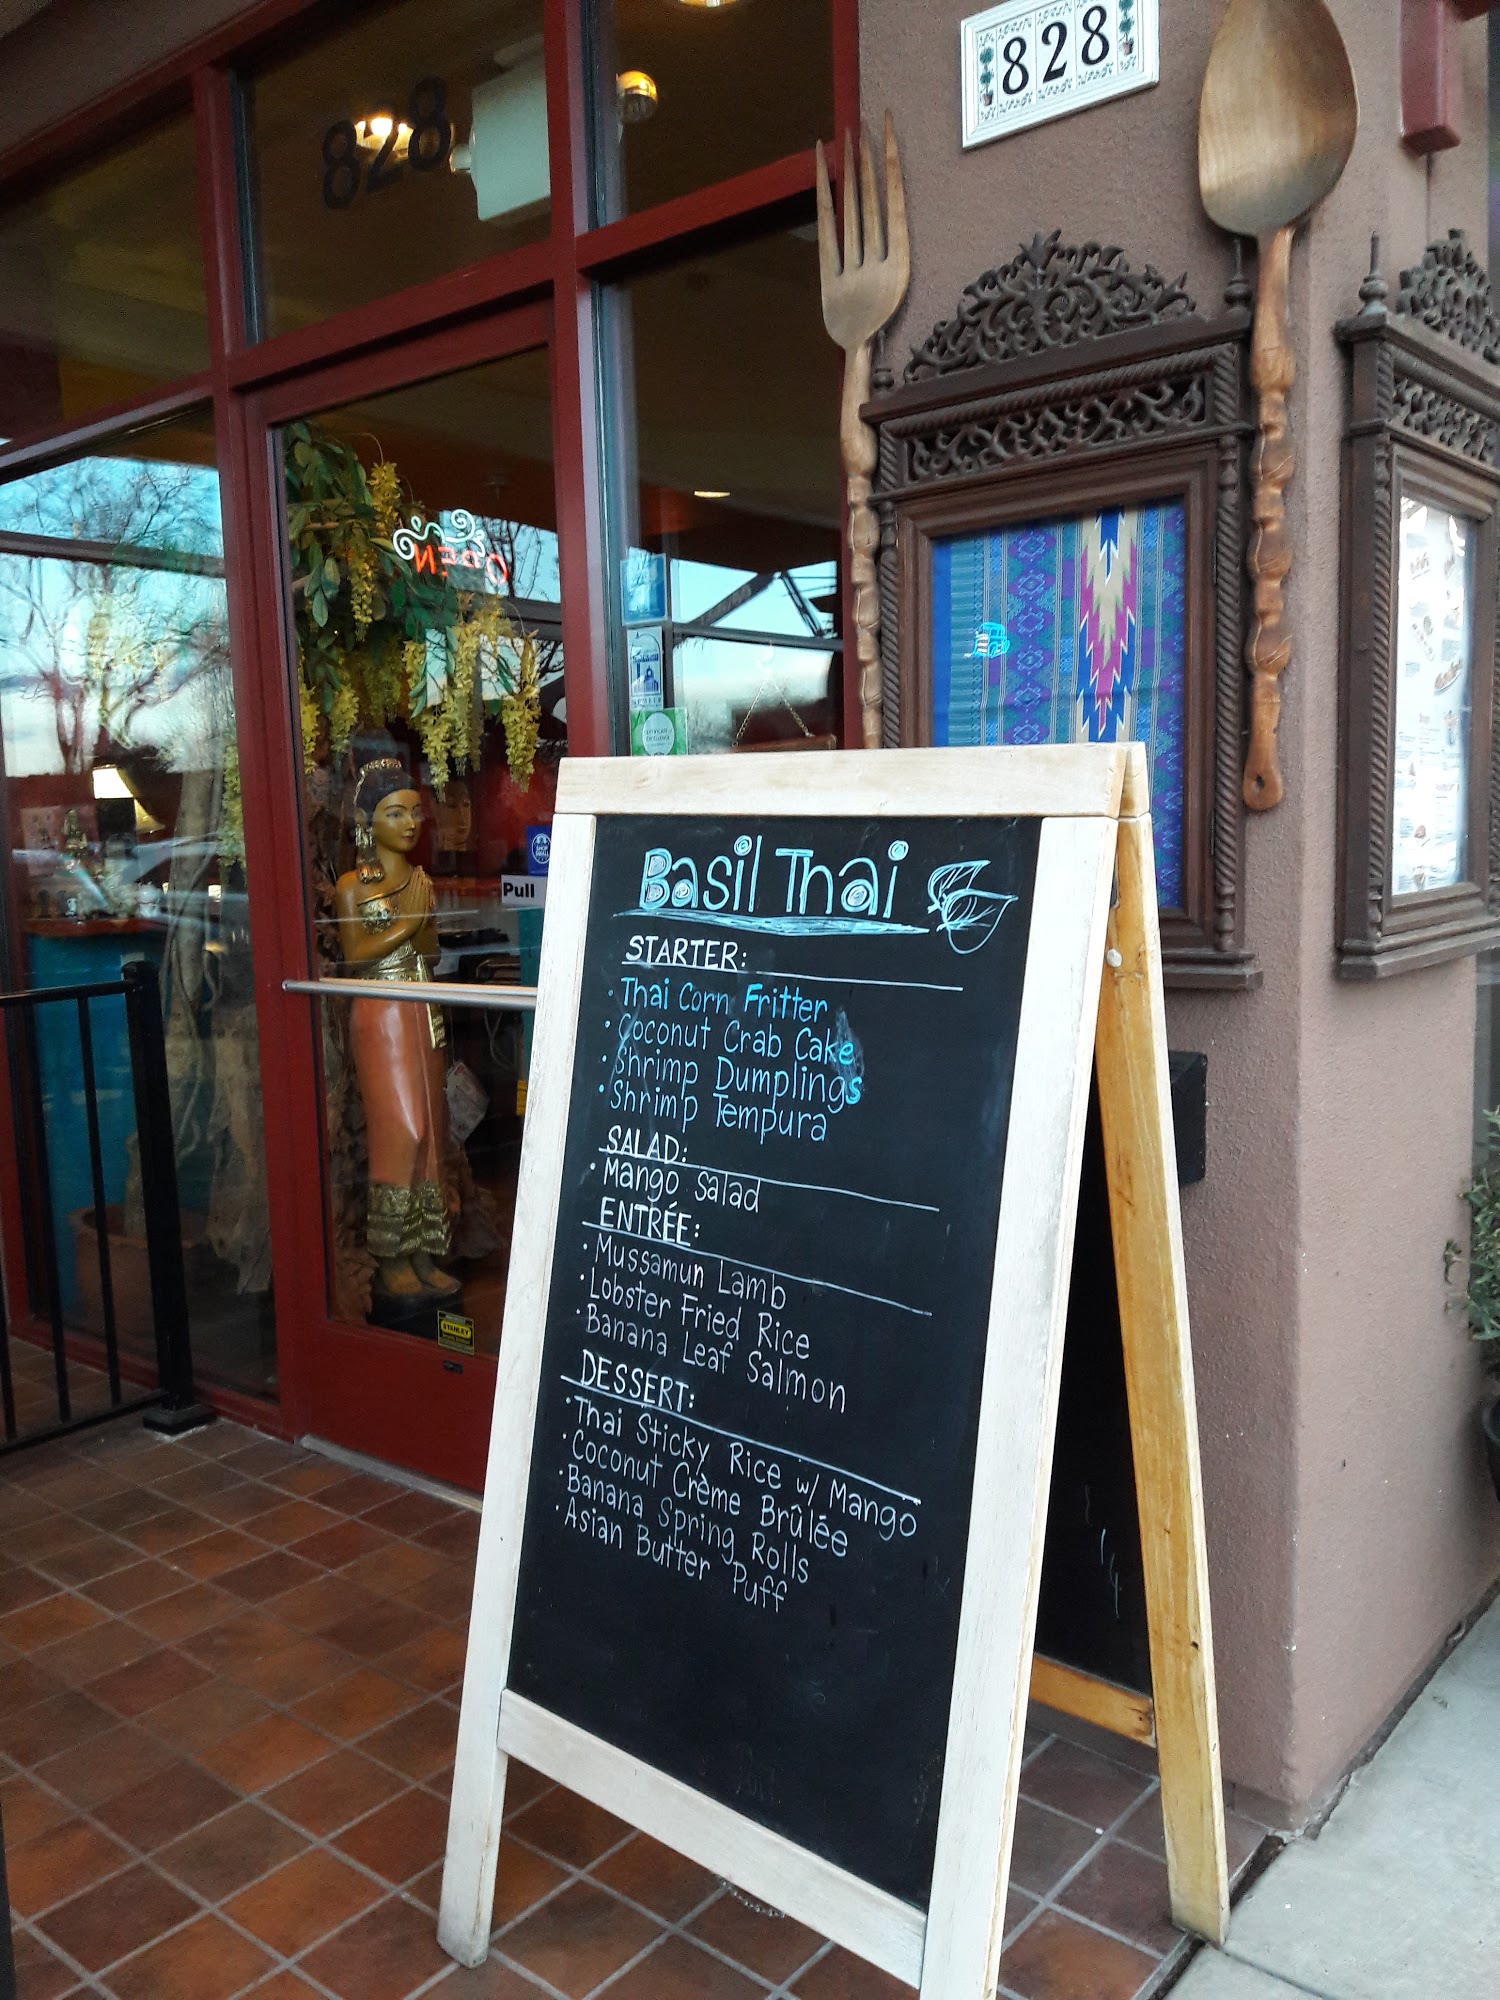 828
828
OPEN
CERTIFICATE of
EXCELLENCE
SHOP
SMALL
Pull
STANLEY
Basil Thai
STARTER:
· Thai Corn Fritter
· Coconut Crab Cake
· Shrimp Dumplings
· Shrimp Tempura
SALAD:
· Mango Salad
ENTRÉE:
· Mussamun Lamb
· Lobster Fried Rice
· Banana Leaf Salmon
DESSERT:
· Thai Sticky Rice w/ Mango
· Coconut Crème Brûlée
· Banana Spring Rolls
· Asian Butter Puff